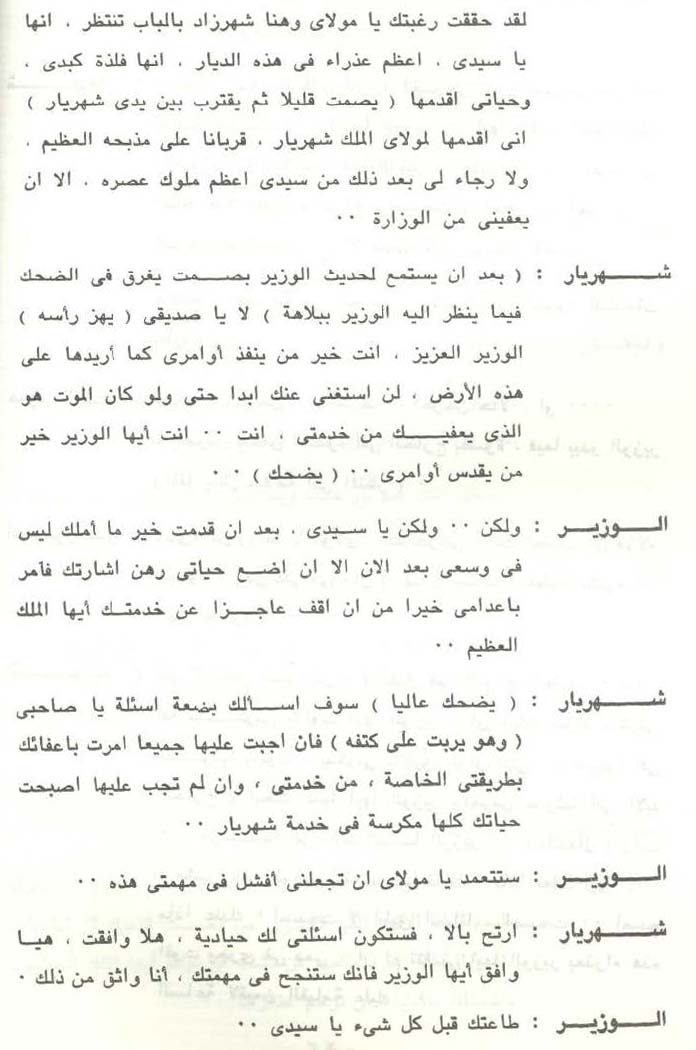 لقد حققت رغبتك يا مولاى وهنا شهرزاد بالباب تنتظر ، انها
يا سيدى ، اعظم عذراء فى هذه الديار ، انها فلذة كبدى ،
وحياتى اقدمها ( يصمت قليلا ثم يقترب بين يدى شهريار )
انى اقدمها لمولاى الملك شهريار ، قربانا على مذبحه العظيم ،
ولا رجاء لى بعد ذلك من سيدى اعظم ملوك عصره ، الا ان
يعفينى من الوزارة ٠٠
شـــــهريار : ( بعد ان يستمع لحديث الوزير بصـــمت يغرق فى الضحك
فيما ينظر اليه الوزير ببلاهة ) لا يا صديقى ( يهز رأسه )
الوزير العزيز ، انت خير من ينفذ أوامرى كما أريدها على
هذه الأرض ، لن استغنى عنك ابدا حتى ولو كان الموت هو
الذى يعفيـــــك من خدمتى ، انت ٠٠ انت أيها الوزير خير
من يقدس أوامرى ٠٠ ( يضحك ) ٠٠
الـــوزيـــر : ولكن ٠٠ ولكن يا ســـيدى ، بعد ان قدمت خير ما أملك ليس
فى وسعى بعد الان الا ان اضـــع حياتى رهن اشارتك فآمر
باعدامى خيرا من ان اقف عاجــــزا عن خدمتــك أيها الملك
العظيم ٠٠
شـــــهريار : ( يضحك عاليا ) سوف اســــألك بضعة اسئلة يا صاحبى
( وهو يربت على كتفه ) فان اجبت عليها جميعا امرت باعفائك
بطريقتى الخاصة ، من خدمتى ، وان لم تجب عليها اصبحت
حياتك كلها مكرسة فى خدمة شهريار ٠٠
الـــوزيـــر : ستتعمد يا مولاى ان تجعلنى أفشل فى مهمتى هذه ٠٠
شـــــهريار : ارتح بالا ، فستكون اسئلتى لك حيادية ، هلا وافقت ، هيــا
وافق أيها الوزير فانك ستنجح فى مهمتك ، أنا واثق من ذلك ٠
الـــوزيـــر : طاعتك قبل كل شىء يا سيدى ٠٠